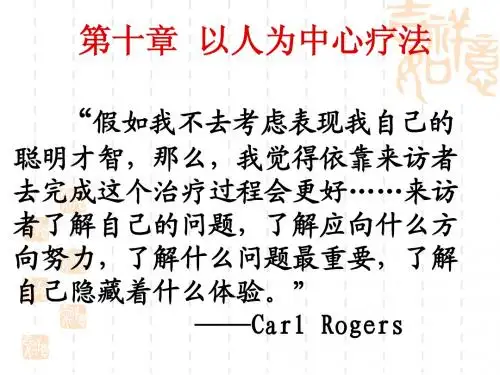 第十章 以人为中心疗法
“假如我不去考虑表现我自己的
聪明才智，那么，我觉得依靠来访者
去完成这个治疗过程会更好……来访
者了解自己的问题，了解应向什么方
向努力，了解什么问题最重要，了解
自己隐藏着什么体验。”
——Carl Rogers